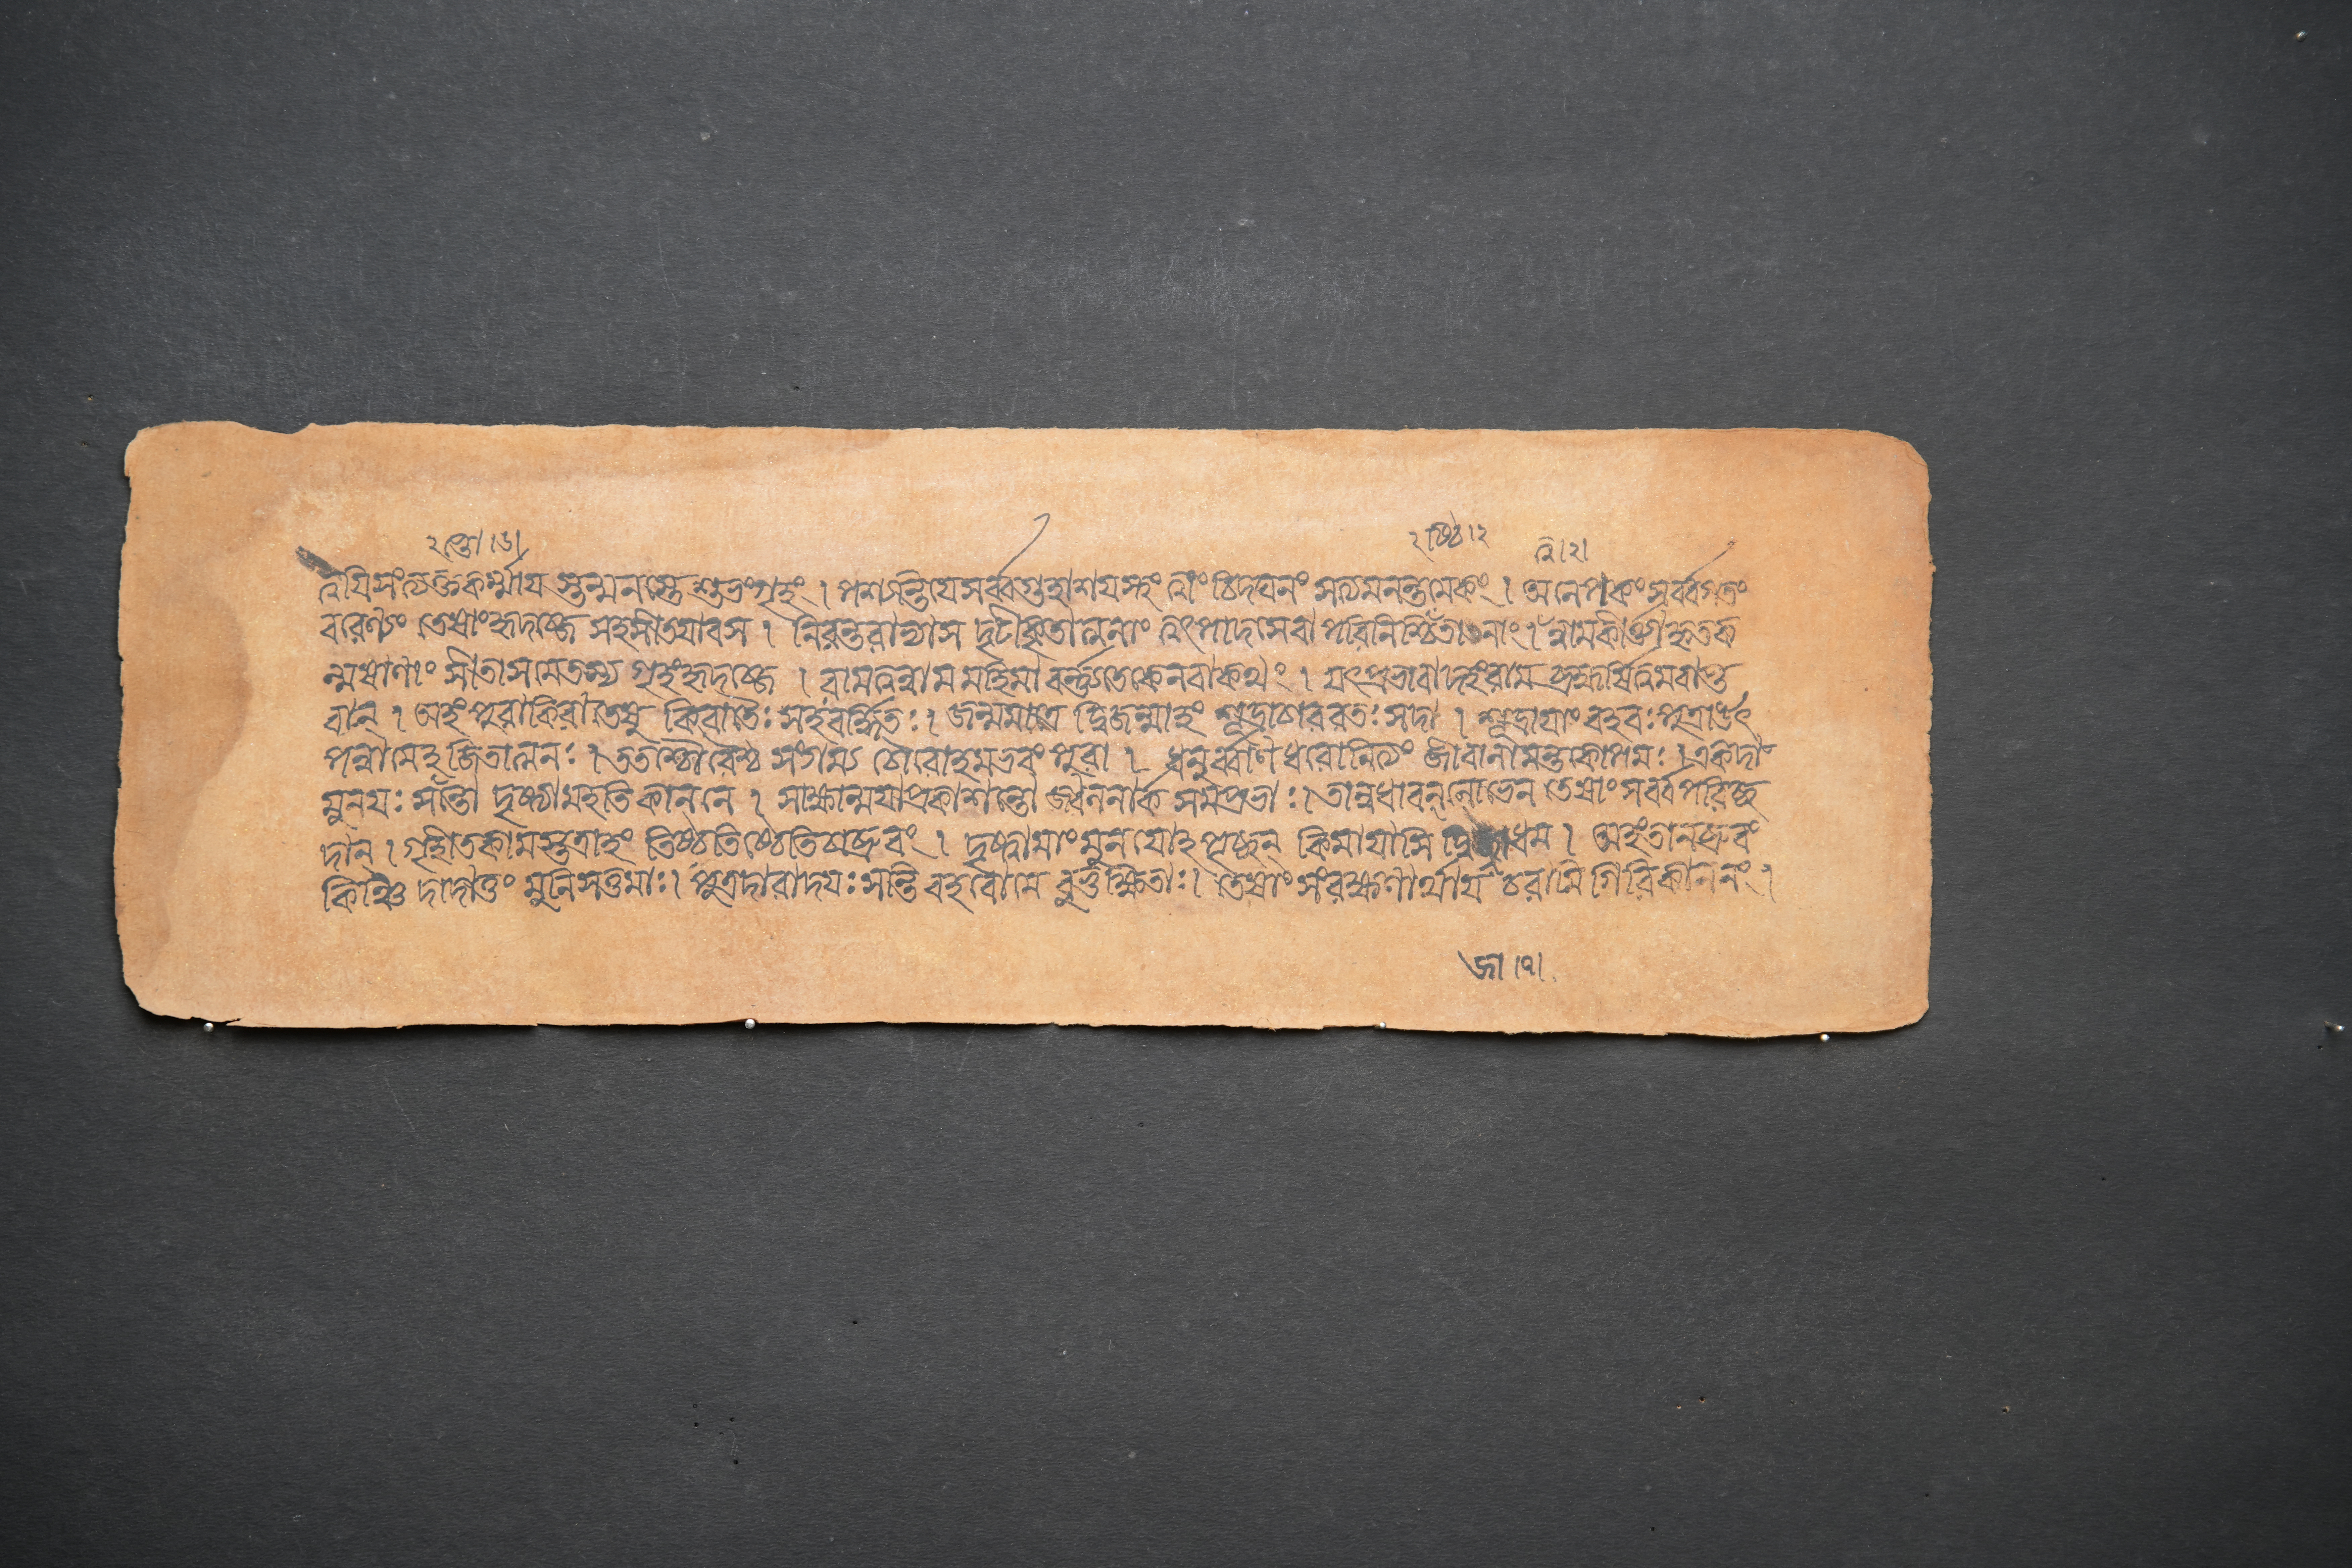 ২ ন্তো ।৬।
২ ষ্ঠি।২
ত্বি।২।
ত্বয়িসংত্যক্তকর্ম্মায স্তন্মনস্তে শুভংগৃহং । পশ্যন্তিযেসর্ব্বগুহাশযস্থং ত্বাং চিদঘনং সত্যমনন্তমেকং । অলেপকং সর্ব্বগতং
বরেণ্যং তেষাংহৃদব্জে সহসীতযাবস । নিরন্তরাভ্যাস দৃঢীকৃতাত্মনাং ত্বৎপাদসেবা পরিনিষ্ঠিতানাং । ত্বন্নামকীর্ত্ত্যা হৃতক
ল্মষাণাং সীতাসমেতস্য গৃহংহৃদব্জে । রামত্বন্নাম মহিমা বর্ন্ন্যতেকেনবাকথং । যৎপ্রভাবাদহংরাম ব্রহ্মর্ষিত্বমবাপ্ত
বান্ । অহং পুরাকিরাতেষু কিরাতৈঃ সহবর্দ্ধিতঃ । জন্মমাত্র দ্বিজন্মাহং শূদ্রাচাররতঃ সদা । শূদ্রাযাং বহবঃ পুত্রা উৎ
পন্নামেহজিতাত্মনঃ । ততশ্চৌরৈশ্চ সংগম্য চৌরোহমভবং পুরা । ধনুর্ব্বাণ ধরোনিত্যং জীবানামন্তকোপমঃ । একদা
মুনযঃ সপ্ত দৃষ্টামহতি কাননে । সাক্ষান্মযাপ্রকাশন্তো জ্বলনার্ক সমপ্রভাঃ । তানন্বধাবন্ লোভেন তেষাং সর্ব্বপরিচ্ছ
দান্ । গৃহীতুকামস্তত্রাহং তিষ্ঠতিষ্ঠেতিচাব্রুবং । দৃষ্ট্বামাং মুনযোহ পৃচ্ছন্ কিমাযাসি দ্বিজাধম । অহংতানব্রুবং
কিঞ্চি দাদাতুং মুনিসত্তমাঃ । পুত্রদারাদযঃ সন্তি বহবোমে বুভুক্ষিতাঃ । তেষাং সংরক্ষণার্থায চরামি গিরিকাননং ।
জা ।৭।